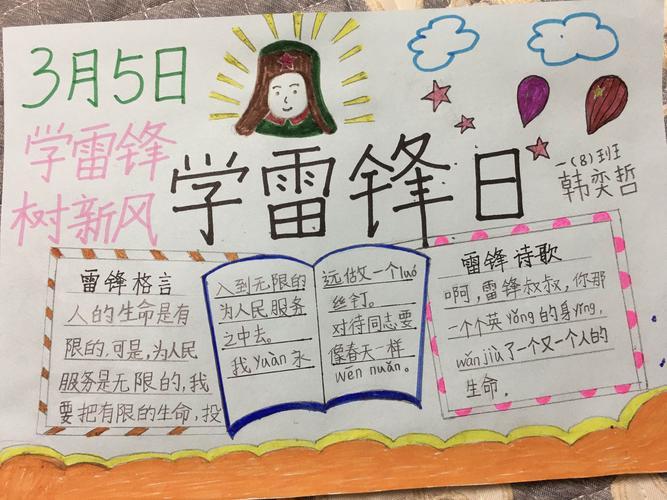 3月5日
学雷锋
树新风
学雷锋日
一(8)班
韩奕哲
雷锋格言
人的生命是有
限的,可是,为人民
服务是无限的,我
要把有限的生命,投
入到无限的
为人民服务
之中去。
我yuàn永
远做一个luó
丝钉。
对待同志要
像春天一样
wēn nuǎn。
雷锋诗歌
啊,雷锋叔叔,你那
一个个英yǒng的身yǐng,
wǎn jiù了一个又一个人的
生命.